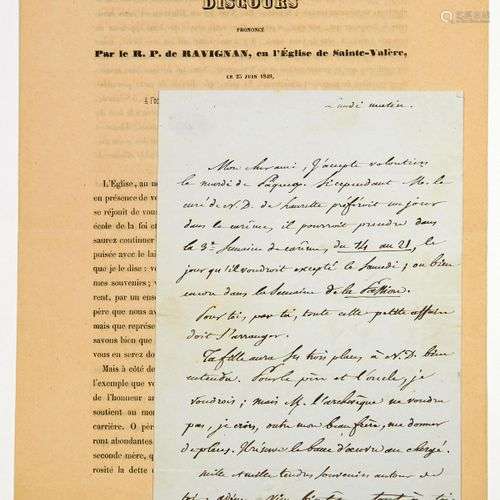 DISCOURS
PRONONCÉ
Par le R. P. de RAVIGNAN, en l'Église de Sainte-Valère,
LE 25 JUIN 1840,
A l'oc
L'Église, au no
en présence de vo
se réjouit de vous
école de la foi et
saurez continuer
puisée avec le lait
que je le dise : vo
mes souvenirs ; vo
rent, par un ense
père que nous av
mais que représe
savons bien que
en vous en serez do
Mais à côté de
l'exemple que vo
de l'honneur an
soutient au mon
carrière. O pèr
ront abondantes
seconde mère, q
rosité la dette
Lundi matin.
Mon cher ami, J'accepte volontiers
le mardi de Pâques. Si cependant Mr. le
curé de N. D. de Lorette préféroit un jour
dans le carême, il pourrait prendre dans
la 3e. Semaine de carême, du 14 au 21, le
jour qu'il voudroit excepté le Samedi ; ou bien
encore dans la Semaine de la Passion.
Pour toi, par toi, toute cette petite affaire
doit s'arranger.
Ta fille aura ses trois places à N. D. bien
entendu. Pour le père et l'oncle, je
voudrois ; mais M. l'archevêque ne voudra
pas, je crois, outre mon beau frère, me donner
de places. Il réserve le banc d'œuvre au clergé.
mille et mille tendres souvenirs autour de
toi